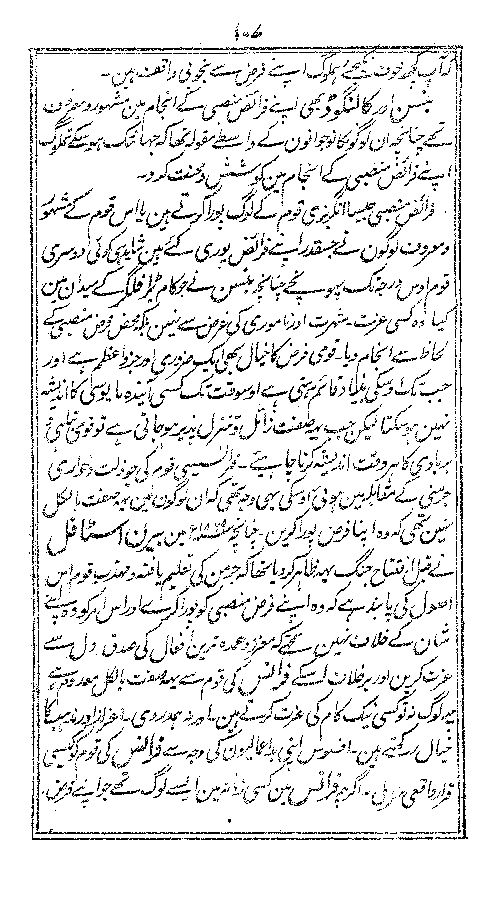 ۱۰۶
کہ آپ کچھ خوف نکیجئے ہملوگ اپنے فرض سے بخوبی واقف ہین۔
نلسن اور کالنگوڈ بھی اپنے فرائض منصبی کے انجام مین مشہور و معروف
تھے چنانچہ ان لوگونکا نوجوانون کے واسطے مقولہ تھا کہ جہانتک ہوسکے تملوگ
اپنے فرائض منصبی کے انجام مین کوشش و محنت کرو۔
فرائض منصبی جیسا انگریزی قوم کے لوگ پورا کرتے ہین یا اس قوم کے مشہور
و معروف لوگون نے جسقدر اپنے فرائض پوری کئے ہین شاید ہی کوئی دوسری
قوم اوس درجہ تک پہونچے چنانچہ نلسن نے جو کام ٹریفلگر کے میدان مین
کیا وہ کسی عزت۔ شہرت اور ناموری کی غرض سے نہین بلکہ محض فرض منصبی کے
لحاظ سے انجام دیا۔ قومی فرض کا خیال بھی ایک ضروری اور جزو اعظم ہے اور
جب تک اوسکی بنیاد قائم رہتی ہے اوسوقت تک کسی آیندہ مایوسی کا اندیشہ
نہین ہوسکتا لیکن جب یہ صفت زائل و تنزل پذیر ہوجاتی ہے تو قومی تباہی و
بربادی کا ہر وقت اندیشہ کرنا چاہیے۔ فرانسیسی قوم کی جو ذلت و خواری
جرمنی کے مقابلہ مین ہوئی اوسکی یہی وجہ تھی کہ ان لوگون مین یہ صفت بالکل
نہین تھی کہ وہ اپنا فرض پورا کرین۔ چنانچہ مین بیرن اسٹافل
نے قبل افتتاح جنگ یہ ظاہر کردیا تھا کہ جرمن کی تعلیم یافتہ و مہذب قوم اس
اصول کی پابند ہے کہ وہ اپنے فرض منصبی کو پورا کرے اور اس امر کو وہ اپنے
شان کے خلاف نہین سمجھتے کہ معزز و عمدہ ترین افعال کی صدق دل سے
عزت کرین اور برخلاف اسکے فرانس کی قوم سے یہ صفت بالکل معدوم ہے
یہ لوگ نہ تو کسی نیک کام کی عزت کرتے ہین۔ اور نہ ہمدردی۔ اعزاز اور مذہب کا
خیال رکھتے ہین۔ افسوس اپنی بداعمالیون کی وجہ سے فرانس کی قوم کو کیسی
قرار واقعی سزا ملی۔ اگرچہ فرانس مین کسی زمانہ مین ایسے لوگ تھے جو اپنے فرض